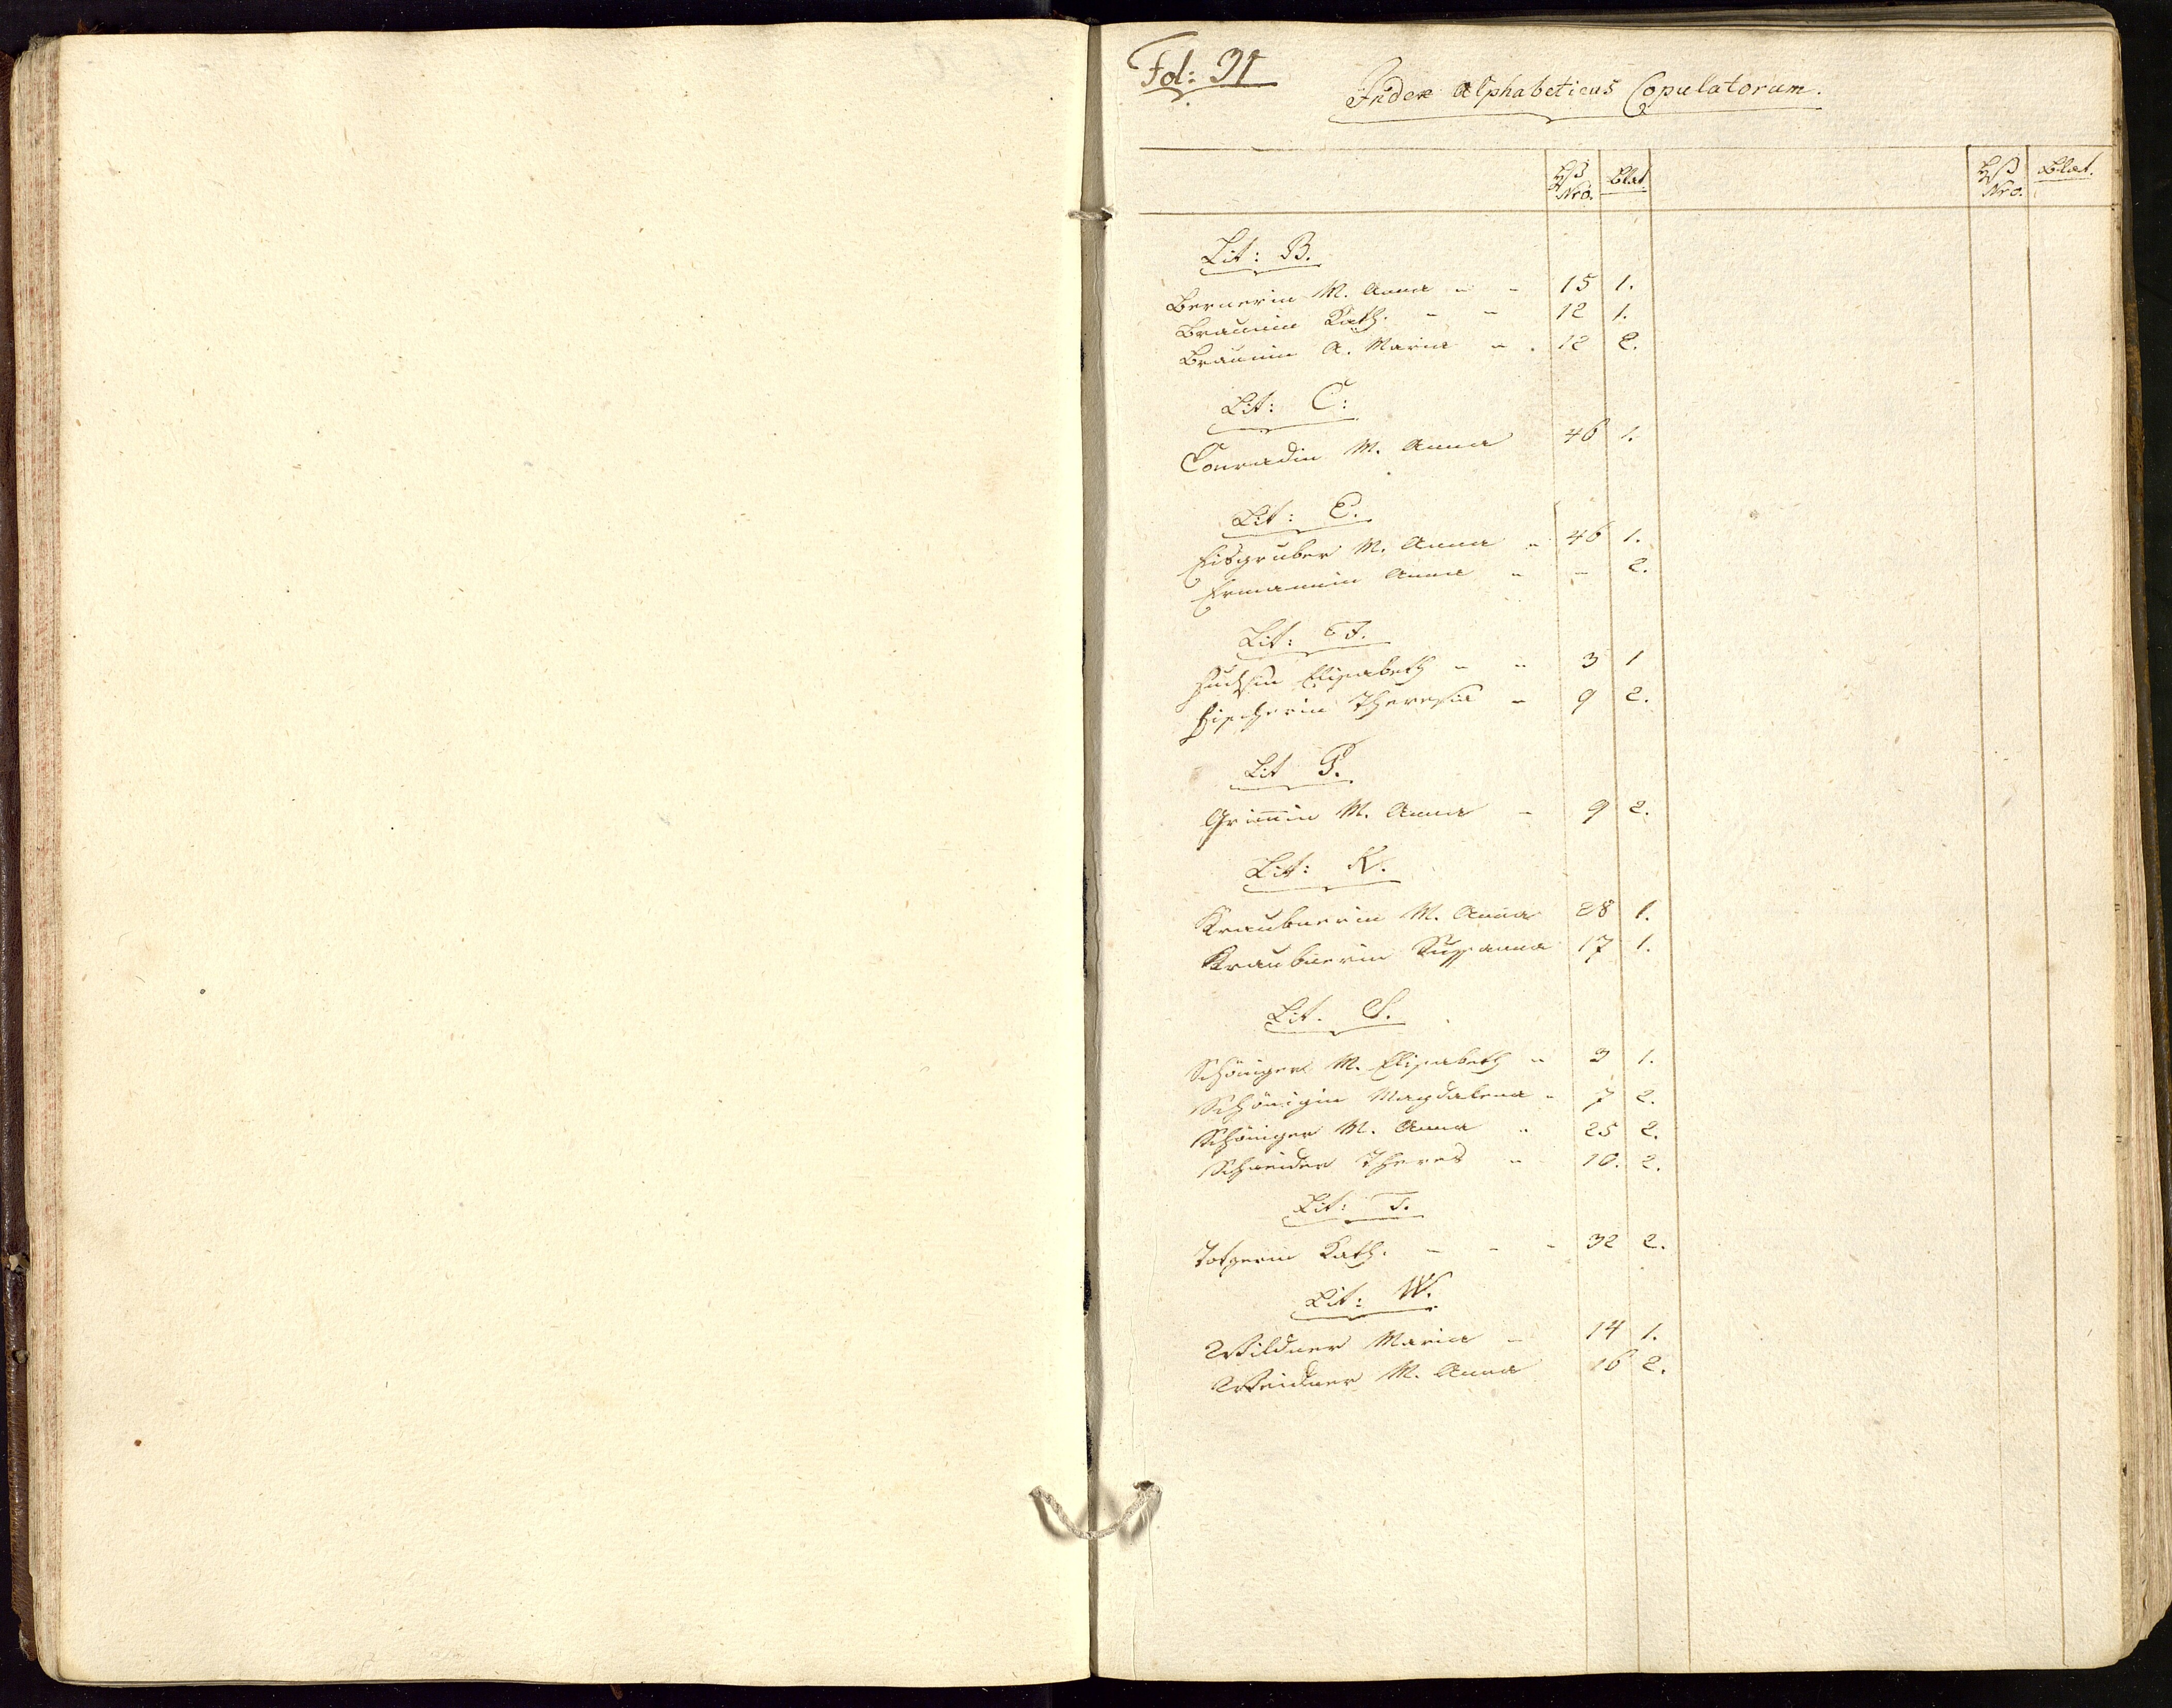 Fol: 31
Index Alphabeticus Copulatorum.
Hß Nro. Blat. Hß Nro. Blat.
Lit: B.
Bernerin M. Anna " " 15 1.
Braunin Kath. " " 12 1.
Braunin A. Maria " . 12 2.
Lit: C:
Conradin M. Anna 46 1.
Lit: E.
Eisgruber M. Anna " 46 1.
Ermannin Anna " – 2.
Lit: F.
Elisabeth " " 3 1
Fischerin Theresia " 9 2.
Lit G.
Grim̄in M. Anna " 9 2.
Lit: K.
Kraubnerin M. Anna 28 1.
Kraubnerin Susanna 17 1.
Lit. S.
Schöniger M. Elisabeth " 3 1.
Schönigin Magdalena " 7 2.
Schöniger M. Anna " 25 2.
Schneider Theres " 10. 2.
Lit: T.
Kath. " " " 32 2.
Lit: W.
Wildner Maria " 14 1.
Weidner M. Anna 16 2.